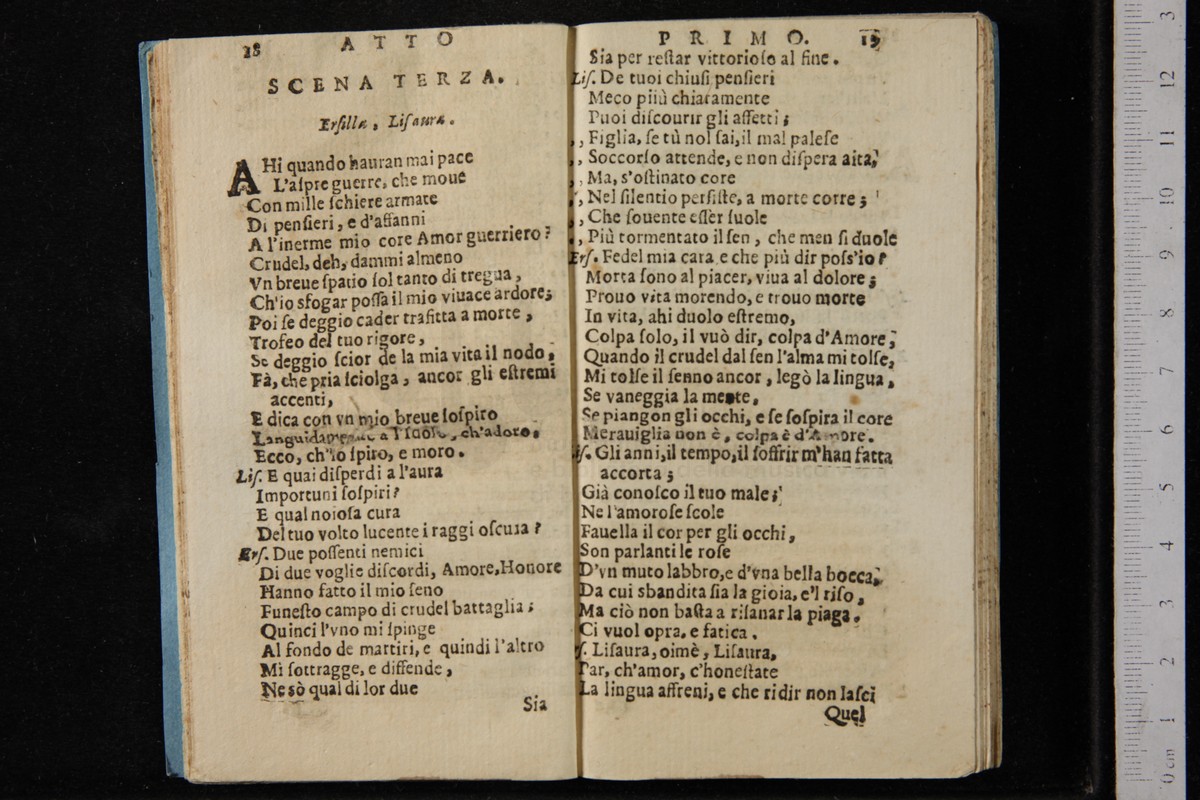 18 ATTO
SCENA TERZA.
Erſilla, Liſaura.
AHi quando hauran mai pace
L'aſpre guerre, che moue
Con mille ſchiere armate
Di penſieri, e d'affanni
A l'inerme mio core Amor guerriero?
Crudel, deh, dammi almeno
Vn breue ſpatio ſol tanto di tregua,
Ch'io sfogar poſſa il mio viuace ardore;
Poi ſe deggio cader trafitta a morte,
Trofeo del tuo rigore,
Se deggio ſcior de la mia vita il nodo,
Fà, che pria ſciolga, ancor gli eſtremi
accenti,
E dica con vn mio breue ſoſpiro
ch'adoro.
Ecco, ch'io ſpiro, e moro.
Liſ. E quai diſperdi a l'aura
Importuni ſoſpiri?
E qual noioſa cura
Del tuo volto lucente i raggi oſcura?
Erſ. Due poſſenti nemici
Di due voglie diſcordi, Amore, Honore
Hanno fatto il mio ſeno
Funeſto campo di crudel battaglia;
Quinci l'vno mi ſpinge
Al fondo de martiri, e quindi l'altro
Mi ſottragge, e diffende,
Ne sò qual di lor due
Sia
PRIMO. 19
Sia per reſtar vittorioſo al fine.
Liſ. De tuoi chiuſi penſieri
Meco piiù chiaramente
Puoi diſcourir gli affetti;
,, Figlia, ſe tù nol ſai, il mal paleſe
,, Soccorſo attende, e non diſpera aita;
,, Ma, s'oſtinato core
,, Nel ſilentio perſiſte, a morte corre;
,, Che ſouente eſſer ſuole
,, Più tormentato il ſen, che men ſi duole
Erſ. Fedel mia cara e che più dir poſs'io?
Morta ſono al piacer, viua al dolore;
Prouo vita morendo, e trouo morte
In vita, ahi duolo eſtremo,
Colpa ſolo, il vuò dir, colpa d'Amore;
Quando il crudel dal ſen l'alma mi tolſe,
Mi tolſe il ſenno ancor, legò la lingua,
Se vaneggia la mente,
Se piangon gli occhi, e ſe ſoſpira il core
Merauiglia non è, colpa è d'Amore.
iſ. Gli anni, il tempo, il ſoffrir m'han fatta
accorta;
Già conoſco il tuo male;
Ne l'amoroſe ſcole
Fauella il cor per gli occhi,
Son parlanti le roſe
D'vn muto labbro, e d'vna bella bocca,
Da cui sbandita ſia la gioia, e'l riſo,
Ma ciò non baſta a riſanar la piaga,
Ci vuol opra, e fatica.
ſ. Liſaura, oimè, Liſaura,
Par, ch'amor, c'honeſtate
La lingua affreni, e che ridir non laſci
Quel
0 cm 1 2 3 4 5 6 7 8 9 10 11 12 13